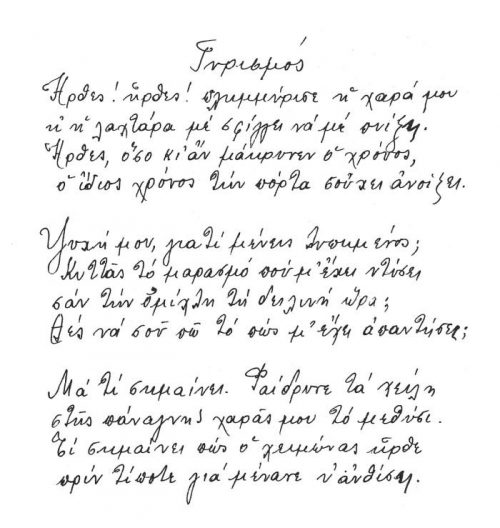 Γυρισμός
Ἦρθες! ἦρθες! πλημμύρισε ἡ χαρά μου
κι' ἡ λαχτάρα μὲ σφίγγει νὰ μὲ πνίξη.
Ἦρθες, ὅσο κι' ἂν μάκρυνεν ὁ χρόνος,
ὁ ἴδιος χρόνος τὴν πόρτα σοὔχει ἀνοίξει.
Ψυχή μου, γιατί μένεις τυπωμένος;
Κυττᾶς τὸ μαρασμὸ ποὺ μ' ἔχει ντύσει
σὰν τὴν ὁμίχλη τὴ δειλινὴ ὥρα;
Θὲς νὰ σοῦ πῶ τὸ πῶς μ' ἔχει ἀπαντήσει;
Μὰ τί σημαίνει. Φαίδρυνε τὰ χείλη
στῆς πάναγνης χαρᾶς μου τὸ μεθύσι.
Τί σημαίνει πὼς ὁ χειμώνας ἦρθε
πρὶν τίποτε γιὰ μένανε ν' ἀνθίση.